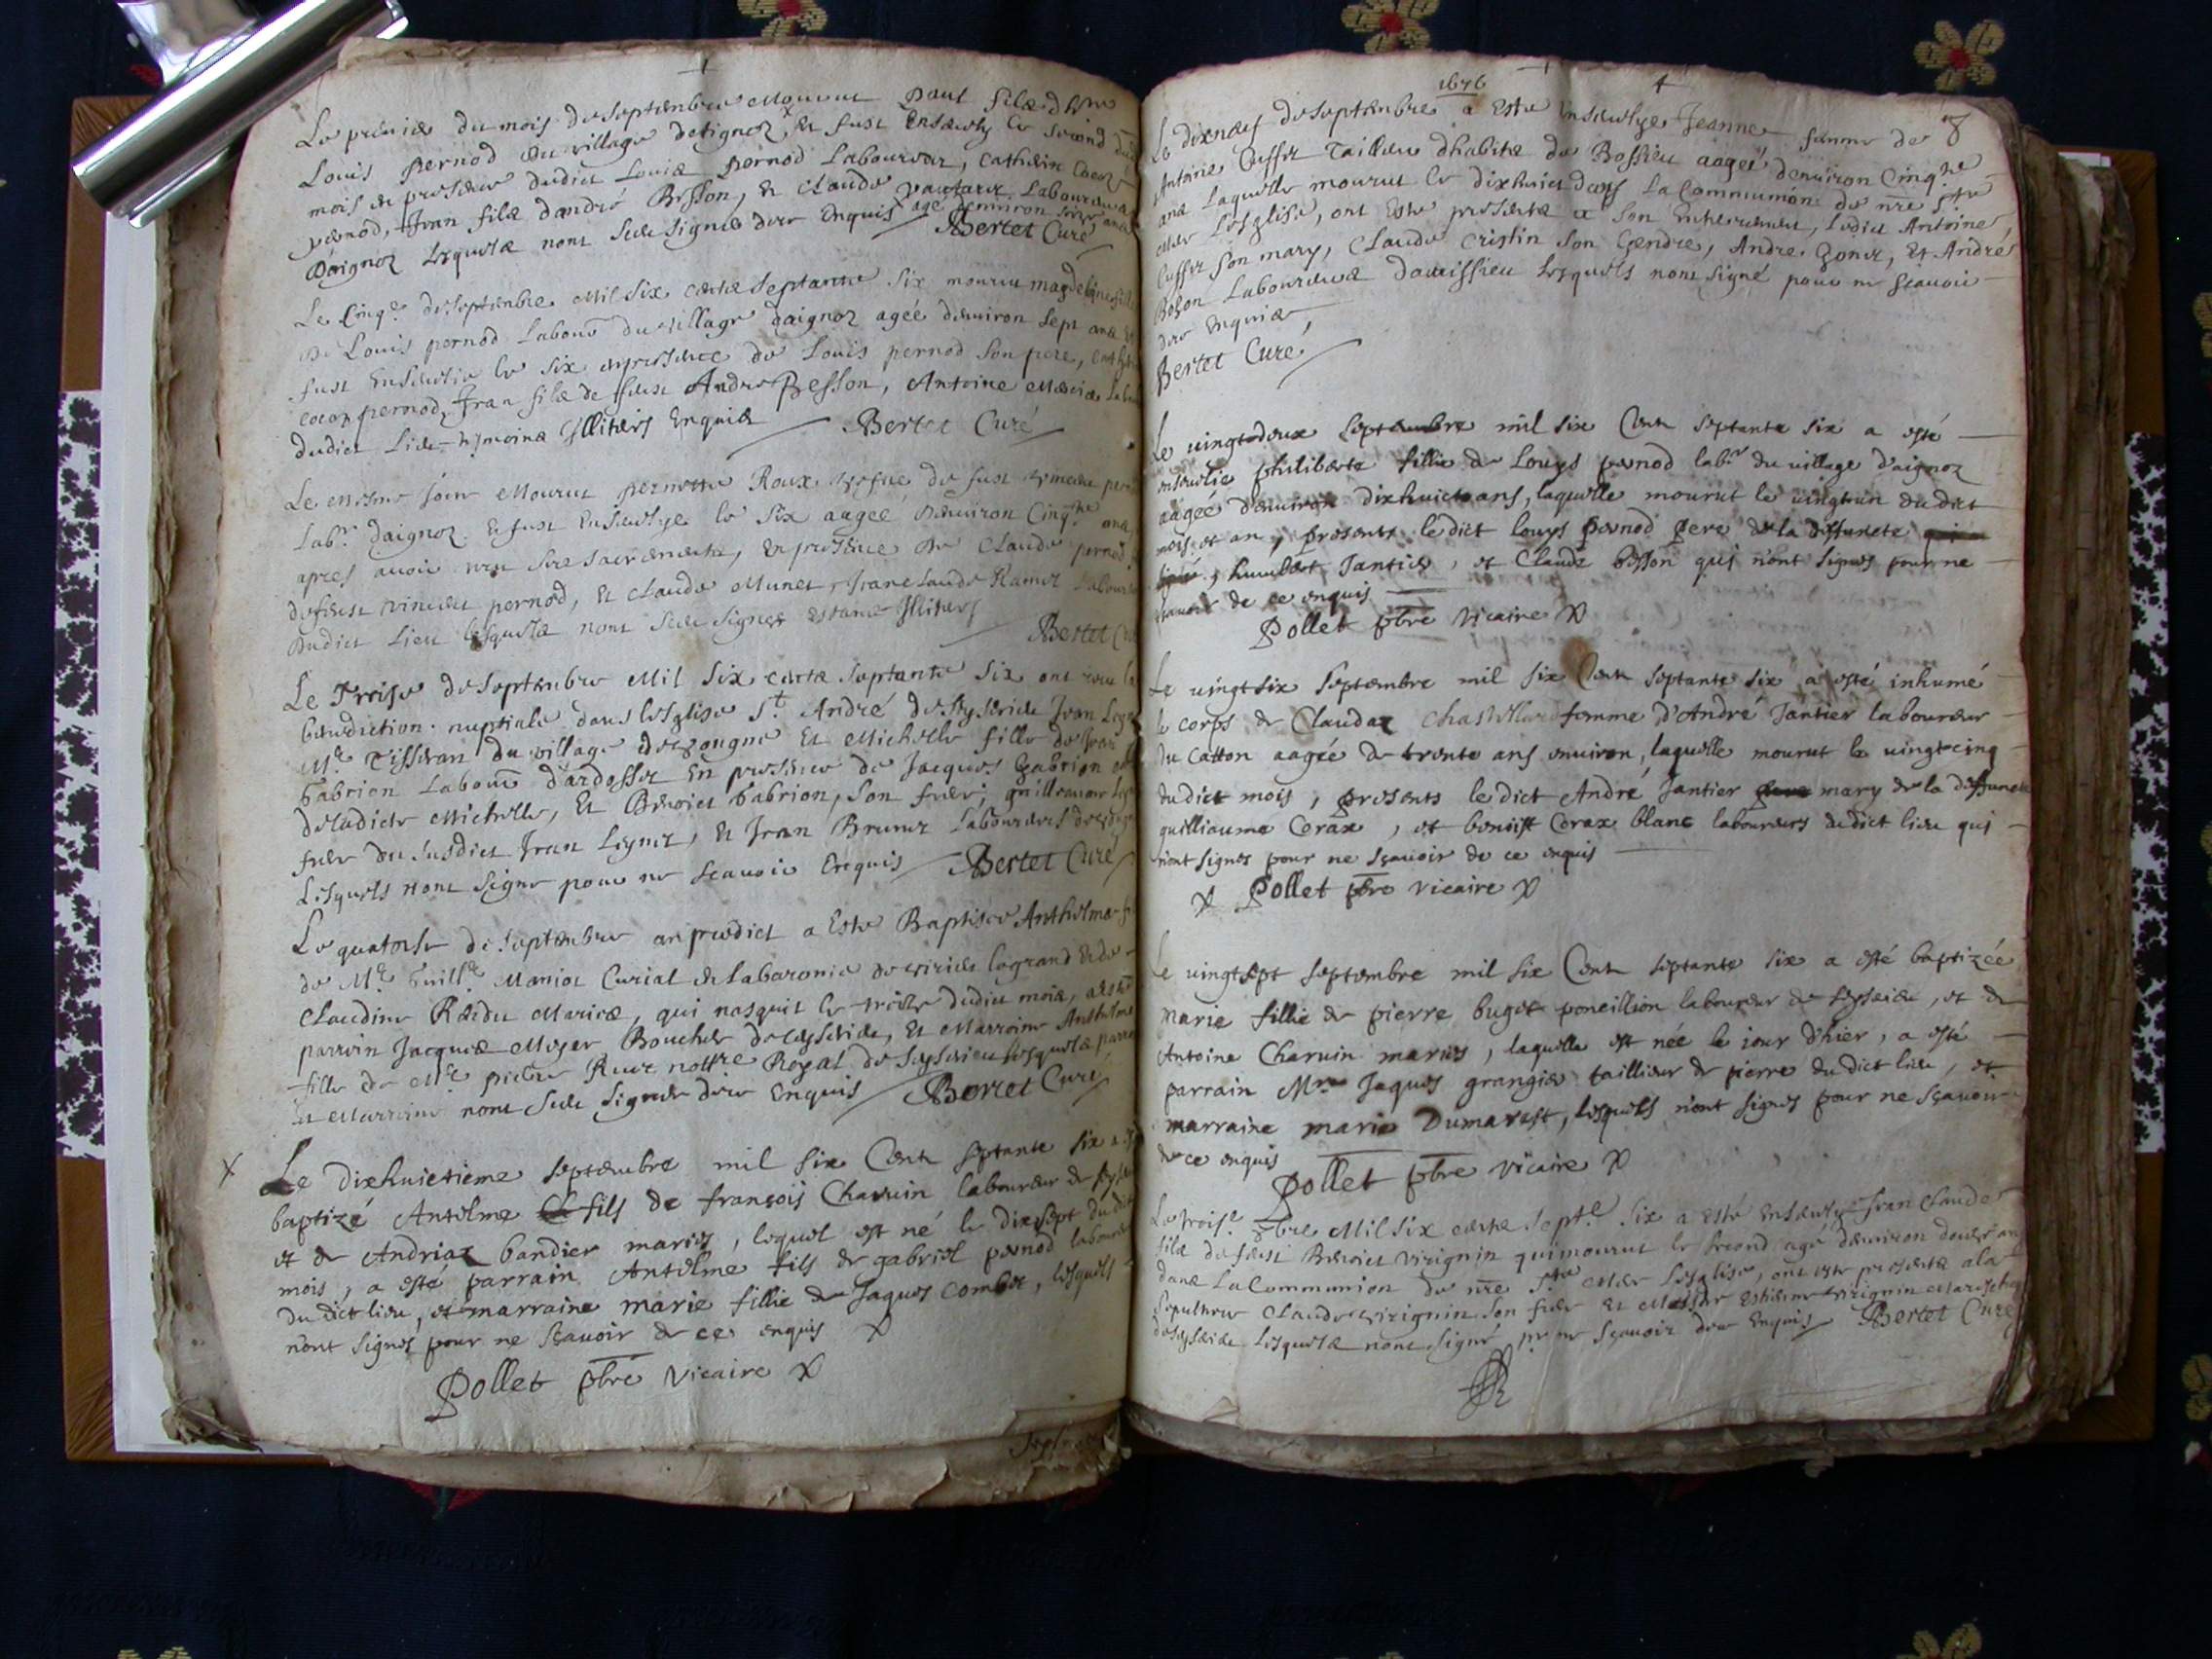 Le premier du mois de septembre mourut Paul fils dhte
Louis pernod du village deignoz, et fust Enseuely le second dud
mois en presence dudict Louis pernod Laboureur, Catherin Cocoz
pernod, Jean fils dandré Besson, et Claude Laboureurs
Daignoz Lesquels nont sceu signer dece Enquis agé denuiron seize ans
Bertet Curé
Le Cinqe de septembre Mil six cents septante six mourru magdeleine fille
De Louis pernod Labour du village daignoz ageé denuiron sept ans Et
fust Enseuelie le six en presence de Louis pernod son pere,
cocoz pernod, Jean fils de feust Andre Besson, Antoine
dudict Lieu tesmoins Illiters Enquis Bertet Curé
Le Mesme jour Mourut pernette Roux vefue de fust vincent per
Labr daignoz. Et fust Enseuelye le six aageé denuiron Cinqte ans
apres auoir receu sacrements, en presence de Claude pernod
defeust vincent pernod, et Claude Munet, Jeanclaude Ramet Laboureurs
Dudict Lieu lesquels nont sceu signer estants Illiters
Bertet Cu
Le Treise de septembre Mil six cents septante six ont receu la
benediction nuptiale dans lesglise st André de seyssrieu Jean
Me Tisseran du village Et Michelle fille de Jean
Gabrion Labour d'ardosset En presence de Jacques Gabrion
deladicte Michelle, Et Benoict Gabrion, son frere, guilleaume
frere du susdict Jean Leynet, Et Jean Brunet Laboureurs
Lesquels nont signe pour ne scauoir Enquis Bertet Curé
Le quatorse de septembre an predict a Este Baptisee Anthelme fi
de Me Guille Maniot Curial de Labaronie de virieu legrand Et de
Claudine Raidu Mariés, qui nasquit le treise dudict mois, a Esté
parrein Jacques Moyer Boucher de seyssrieu, Et Marreine Anthelme
fille de Me pierre Rure nottre Royal de seyssrieu lesquels parrein
et Marreine nont sceu signer dece Enquis Bertet Curé
X Le dixhuictieme septembre mil six Cents septante six a esté
baptizé Antelme fils de françois Charuin laboureur de
et de Andriaz bandier mariés, lequel est né le dixsept du dict
mois, a esté parrain Antelme fils de gabriel pernod laboureur
du dict lieu, et marraine marie fillie de Jaques Combet, lesquels
n'ont signés pour ne sçauoir de ce enquis
Pollet pbre vicaire
Septembre
1676
4
8
Le dixneuf de septembre a Este Enseuelye Jeanne femme de
Antoine Cusset Tailleur dhabits de Rossieu aageé denuiron Cinqte
ans Laquelle mourut le dixhuict dans La Communion de nre ste
mere Lesglise, ont Este presents a son Enterrement, Ledict Antoine
Cusset son mary, Claude Cristin son Gendre, Andre Gonet, Et André
Bozon Laboureurs dauissieu Lesquels nont signé pour ne scauoir
dece Enquis
Bertet Curé
Le uingtedeux septembre mil six Cents septante six a esté
enseuelie philiberte fillie de Louys pernod labr du uillage d'aignoz
aageé d'enuiron dixhuict ans, laquelle mourut le uingtun dudict
mois et an, presents ledict louys pernod pere de la deffuncte
humbert Jantier, et Claude besson qui n'ont signés pour ne
sçauoir de ce enquis
Pollet pbre vicaire
Le uingtsix septembre mil six Cents septante six a esté inhumé
le corps de Claudaz femme d'André Jantier laboureur
du Catton aagée de trente ans enuiron, laquelle mourut le uingtcinq
dudict mois, presents le dict André Jantier mary de la deffuncte
guilliaume Cerax, et benoist Corax blanc laboureurs dudict lieu qui
n'ont signés pour ne sçauoir de ce enquis
Pollet pbre vicaire
Le uingtsept septembre mil six Cents septante six a esté baptizéé
Marie fillie de pierre buget poneillion laboureur de seyssrieu, et de
Antoina Charuin mariés, laquelle est née le iour d'hier, a esté
parrain Mre Jaques grangier taillieur de pierre du dict lieu, et
marraine marie Dumarest, lesquels n'ont signés pour ne sçauoir
de ce enquis
Pollet pbre vicaire
Le troise Mil six cents septe six a esté Enseuely Jean Claude
fils de feust Benoict virignin qui mourut le second agé denuiron douze ans
dans La Communion de nre ste mere Lesglise, ont este presents a la
sepulture Claude virignin son frere et Estienne virignin
de seyssrieu Lesquels nont signé pr ne sçauoir dece Enquis Bertet Curé